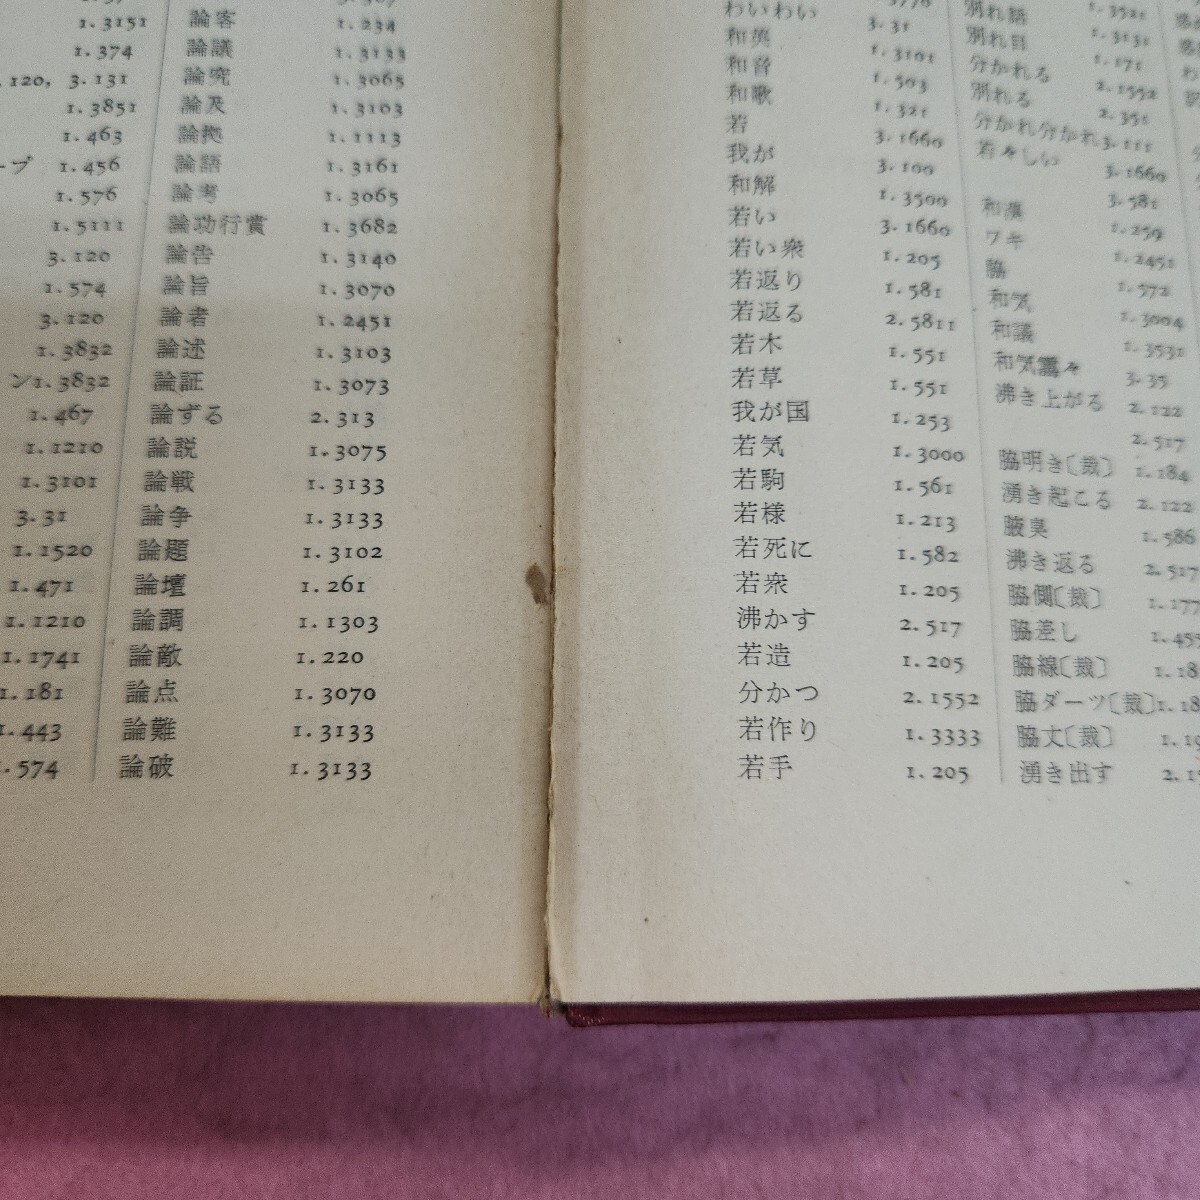 1.3151
1.374
120, 3.131
1.3851
1.463
ープ 1.456
1.576
1.5111
3.120
1.574
3.120
1.3832
ン1.3832
1.467
1.1210
1.3101
3.31
1.1520
1.471
1.1210
1.1741
1.181
1.443
1.574
論客 1.234
論議 1.3133
論究 1.3065
論及 1.3103
論拠 1.1113
論語 1.3161
論考 1.3065
論功行賞 1.3682
論告 1.3140
論旨 1.3070
論者 1.2451
論述 1.3103
論証 1.3073
論ずる 2.313
論説 1.3075
論戦 1.3133
論争 1.3133
論題 1.3102
論壇 1.261
論調 1.1303
論敵 1.220
論点 1.3070
論難 1.3133
論破 1.3133
わいわい 3.31
和英 1.3101
和音 1.503
和歌 1.321
若 3.1660
我が 3.100
和解 1.3500
若い 3.1660
若い衆 1.205
若返り 1.581
若返る 2.5811
若木 1.551
若草 1.551
我が国 1.253
若気 1.3000
若駒 1.561
若様 1.213
若死に 1.582
若衆 1.205
沸かす 2.517
若造 1.205
分かつ 2.1552
若作り 1.3333
若手 1.205
別れ話 1.3521
別れ目 1.3131
1.171
分かれる 2.1552
別れる 2.351
分かれ分かれ 3.111
若々しい 3.1660
3.581
1.259
ワキ 1.2451
脇 1.572
和気 1.3004
和議 1.3531
和気靄々 3.35
沸き上がる 2.122
2.517
脇明き〔裁〕 1.184
湧き起こる 2.122
腋臭 1.586
沸き返る 2.517
脇側〔裁〕 1.177
脇差し 1.455
脇線〔裁〕 1.18
脇ダーツ〔裁〕1.18
脇丈〔裁〕 1.19
湧き出す 2.1